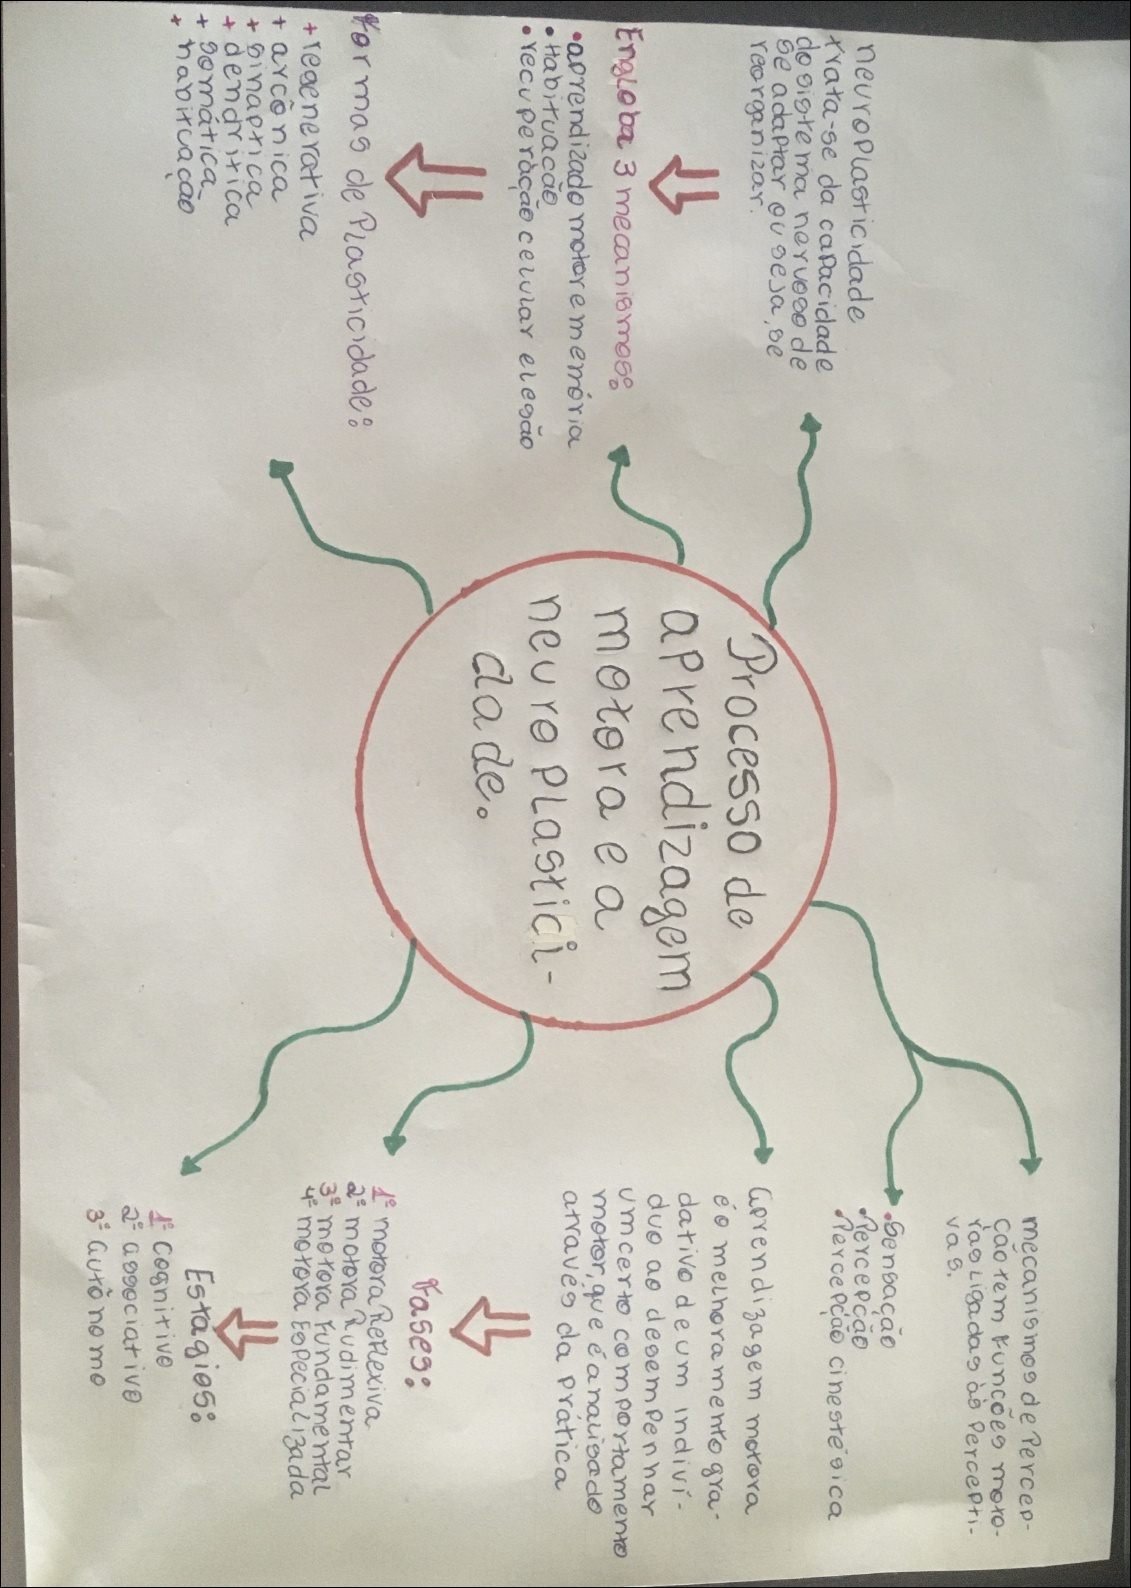 Processo de
aprendizagem
motora e a
neuroplastici-
dade.
neuroplasticidade
trata-se da capacidade
do sistema nervoso de
se adaptar ou seja, se
reorganizar.
Engloba 3 mecanismos:
• aprendizado motor e memória
• Habituação
• recuperação celular elesão
Formas de Plasticidade:
+ regenerativa
+ arcônica
+ sinaptica
+ dendritica
+ somática
+ habituação
mecanismos de Percep-
ção tem funções moto-
ras ligadas às Percepti-
vas.
• Sensação
• Percepção
• Percepção cinestésica
aprendizagem motora
é o melhoramento gra-
dativo de um indiví-
duo ao desempenhar
um certo comportamento
motor, que é analisado
através da prática
Fases:
1º motora Reflexiva
2º motora Rudimentar
3º motora Fundamental
4º motora Especializada
Estágios:
1º Cognitivo
2º associativo
3º autônomo